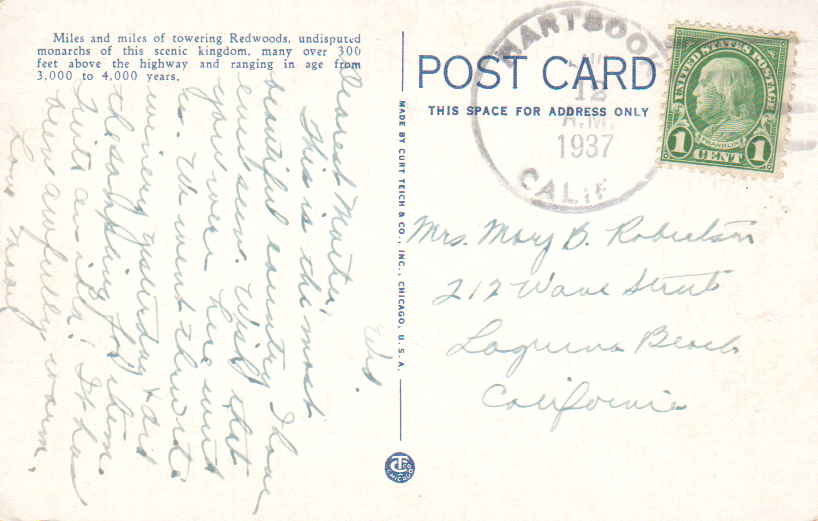 Miles and miles of towering Redwoods, undisputed
monarchs of this scenic kingdom, many over 300
feet above the highway and ranging in age from
3,000 to 4,000 years.
Wed.
Dearest Mother,
This is the most
beautiful country I have
ever seen. Wish that
you were here with
us. We went thru the
winery yesterday & did
the sampling for them.
Quite an idea! It has
been awfully warm.
Love
MADE BY CURT TEICH & CO., INC., CHICAGO, U.S.A.
CHICAGO
POST CARD
THIS SPACE FOR ADDRESS ONLY
HARTSOOK
12
A.M.
1937
CALIF
UNITED STATES POSTAGE
FRANKLIN
1 CENT 1
Mrs. Mary B. Robertson
212 Wave Street
Laguna Beach
California